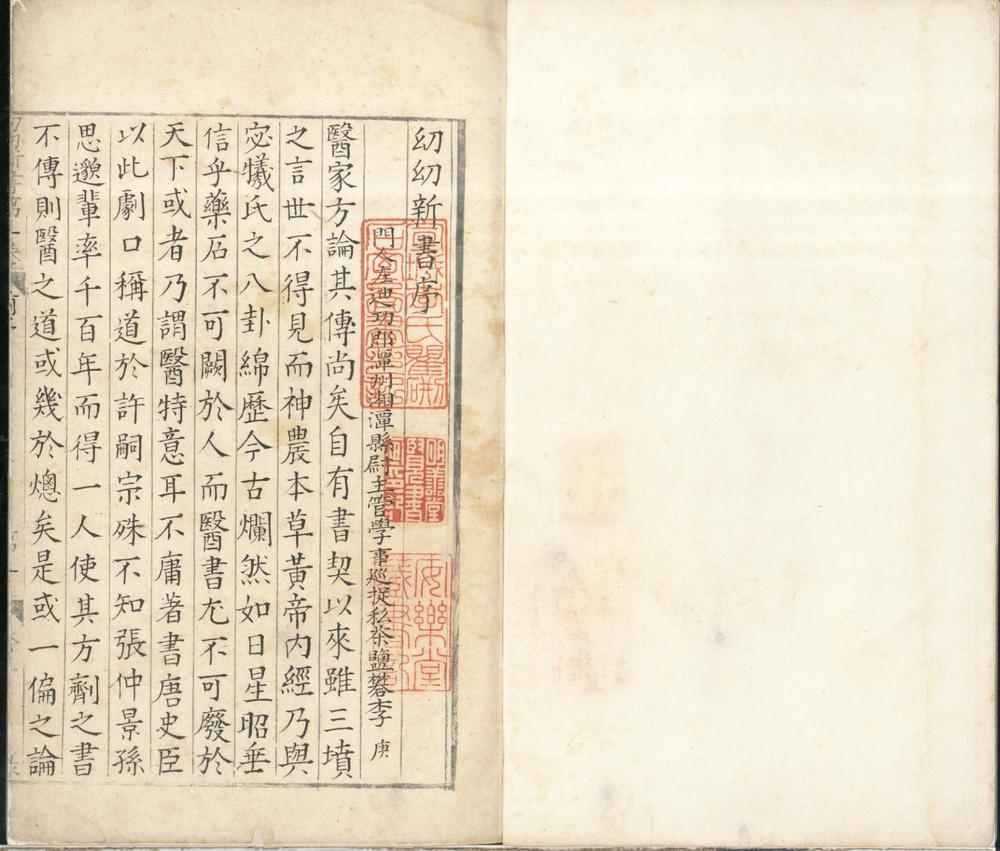 幼幼新書序
門人左迪功郎潭州湘潭縣尉主管學事巡捉私茶鹽礬李庚
醫家方論其傳尚矣自有書契以來雖三墳
之言世不得見而神農本草黃帝內經乃與
宓犧氏之八卦綿歷今古爛然如日星昭垂
信乎藥石不可闕於人而醫書尢不可廢於
天下或者乃謂醫特意耳不庸著書唐史臣
以此劇口稱道於許嗣宗殊不知張仲景孫
思邈輩率千百年而得一人使其方劑之書
不傳則醫之道或幾於熄矣是或一偏之論
明善堂
覽書
畫印記
安樂堂
藏書記